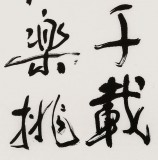 千載
樂挑